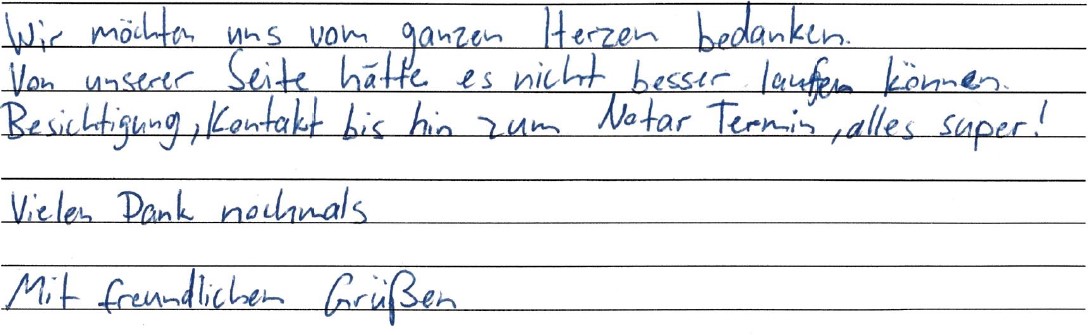 Wir möchten uns vom ganzen Herzen bedanken.
Von unserer Seite hätte es nicht besser laufen können.
Besichtigung, Kontakt bis hin zum Notar Termin, alles super!
Vielen Dank nochmals
Mit freundlichen Grüßen